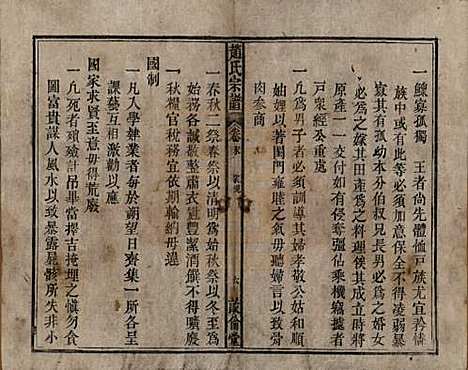 一鰥寡孤獨　王者尚先體恤戶族尤宜矜憐
一戶族中如有此等者必須加意保全不得凌弱暴
寡其有孤幼本分伯叔兄長男必爲之婚女
必爲之嫁其田產爲之料理俟其成立時將
原產一一交付如有侵奪彊佔乘機竊據者
戶衆經公重處
一凡爲男子者必須訓導其婦孝敬公姑和順
妯娌以著閨門雍睦之氣毋聽婦言以致骨
肉參商
趙氏宗譜
卷末
家規
六
敦倫堂
一春秋二祭春祭以清明爲始秋祭以冬至爲
始務各誠敬整肅衣冠豐潔酒饌不得隳廢
一秋糧官稅務宜依期輸納毋違
國制
一凡入學肄業者每於朔望日齊集一所各呈
課藝互相激勸以應
國家求賢至意毋得荒廢
一凡死者殯殮計吊畢當擇吉掩埋之慎勿貪
圖富貴謀人風水以致暴露屍骸所失非小